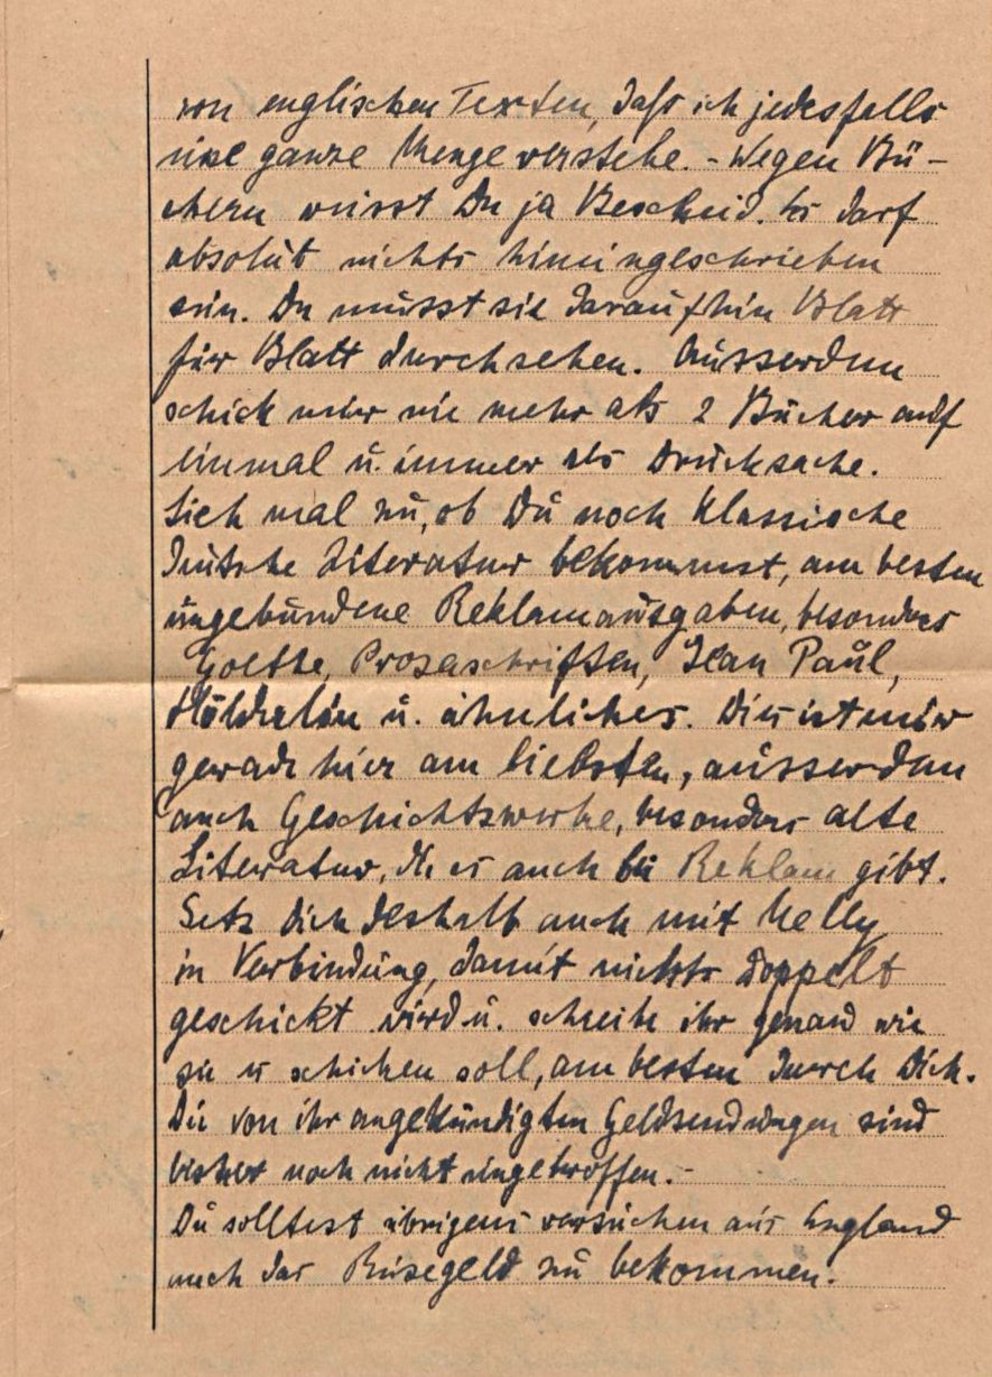 von englischen Texten, daß ich jedesfalls
eine ganze Menge verstehe. - Wegen Bü-
chern weisst Du ja Bescheid. Es darf
absolut nichts hineingeschrieben
sein. Du musst sie daraufhin Blatt
für Blatt durchsehen. Ausserdem
schick mir nie mehr als 2 Bücher auf
einmal u. immer als Drucksache.
Sieh mal zu, ob Du noch klassische
deutsche Literatur bekommst, am besten
ungebundene Reklamausgaben, besonders
Goethe, Prosaschriften, Jean Paul,
Hölderlin u. ähnliches. Dies ist mir
gerade hier am liebsten, ausserdem
auch Geschichtswerke, besonders alte
Literatur, die es auch bei Reklam gibt.
Setz Dich deshalb auch mit Nelly
in Verbindung, damit nichts doppelt
geschickt wird u. schreibe ihr genau wie
sie es schicken soll, am besten durch Dich.
Die von ihr angekündigten Geldsendungen sind
bisher noch nicht eingetroffen. -
Du solltest übrigens versuchen aus England
auch das Reisegeld zu bekommen.